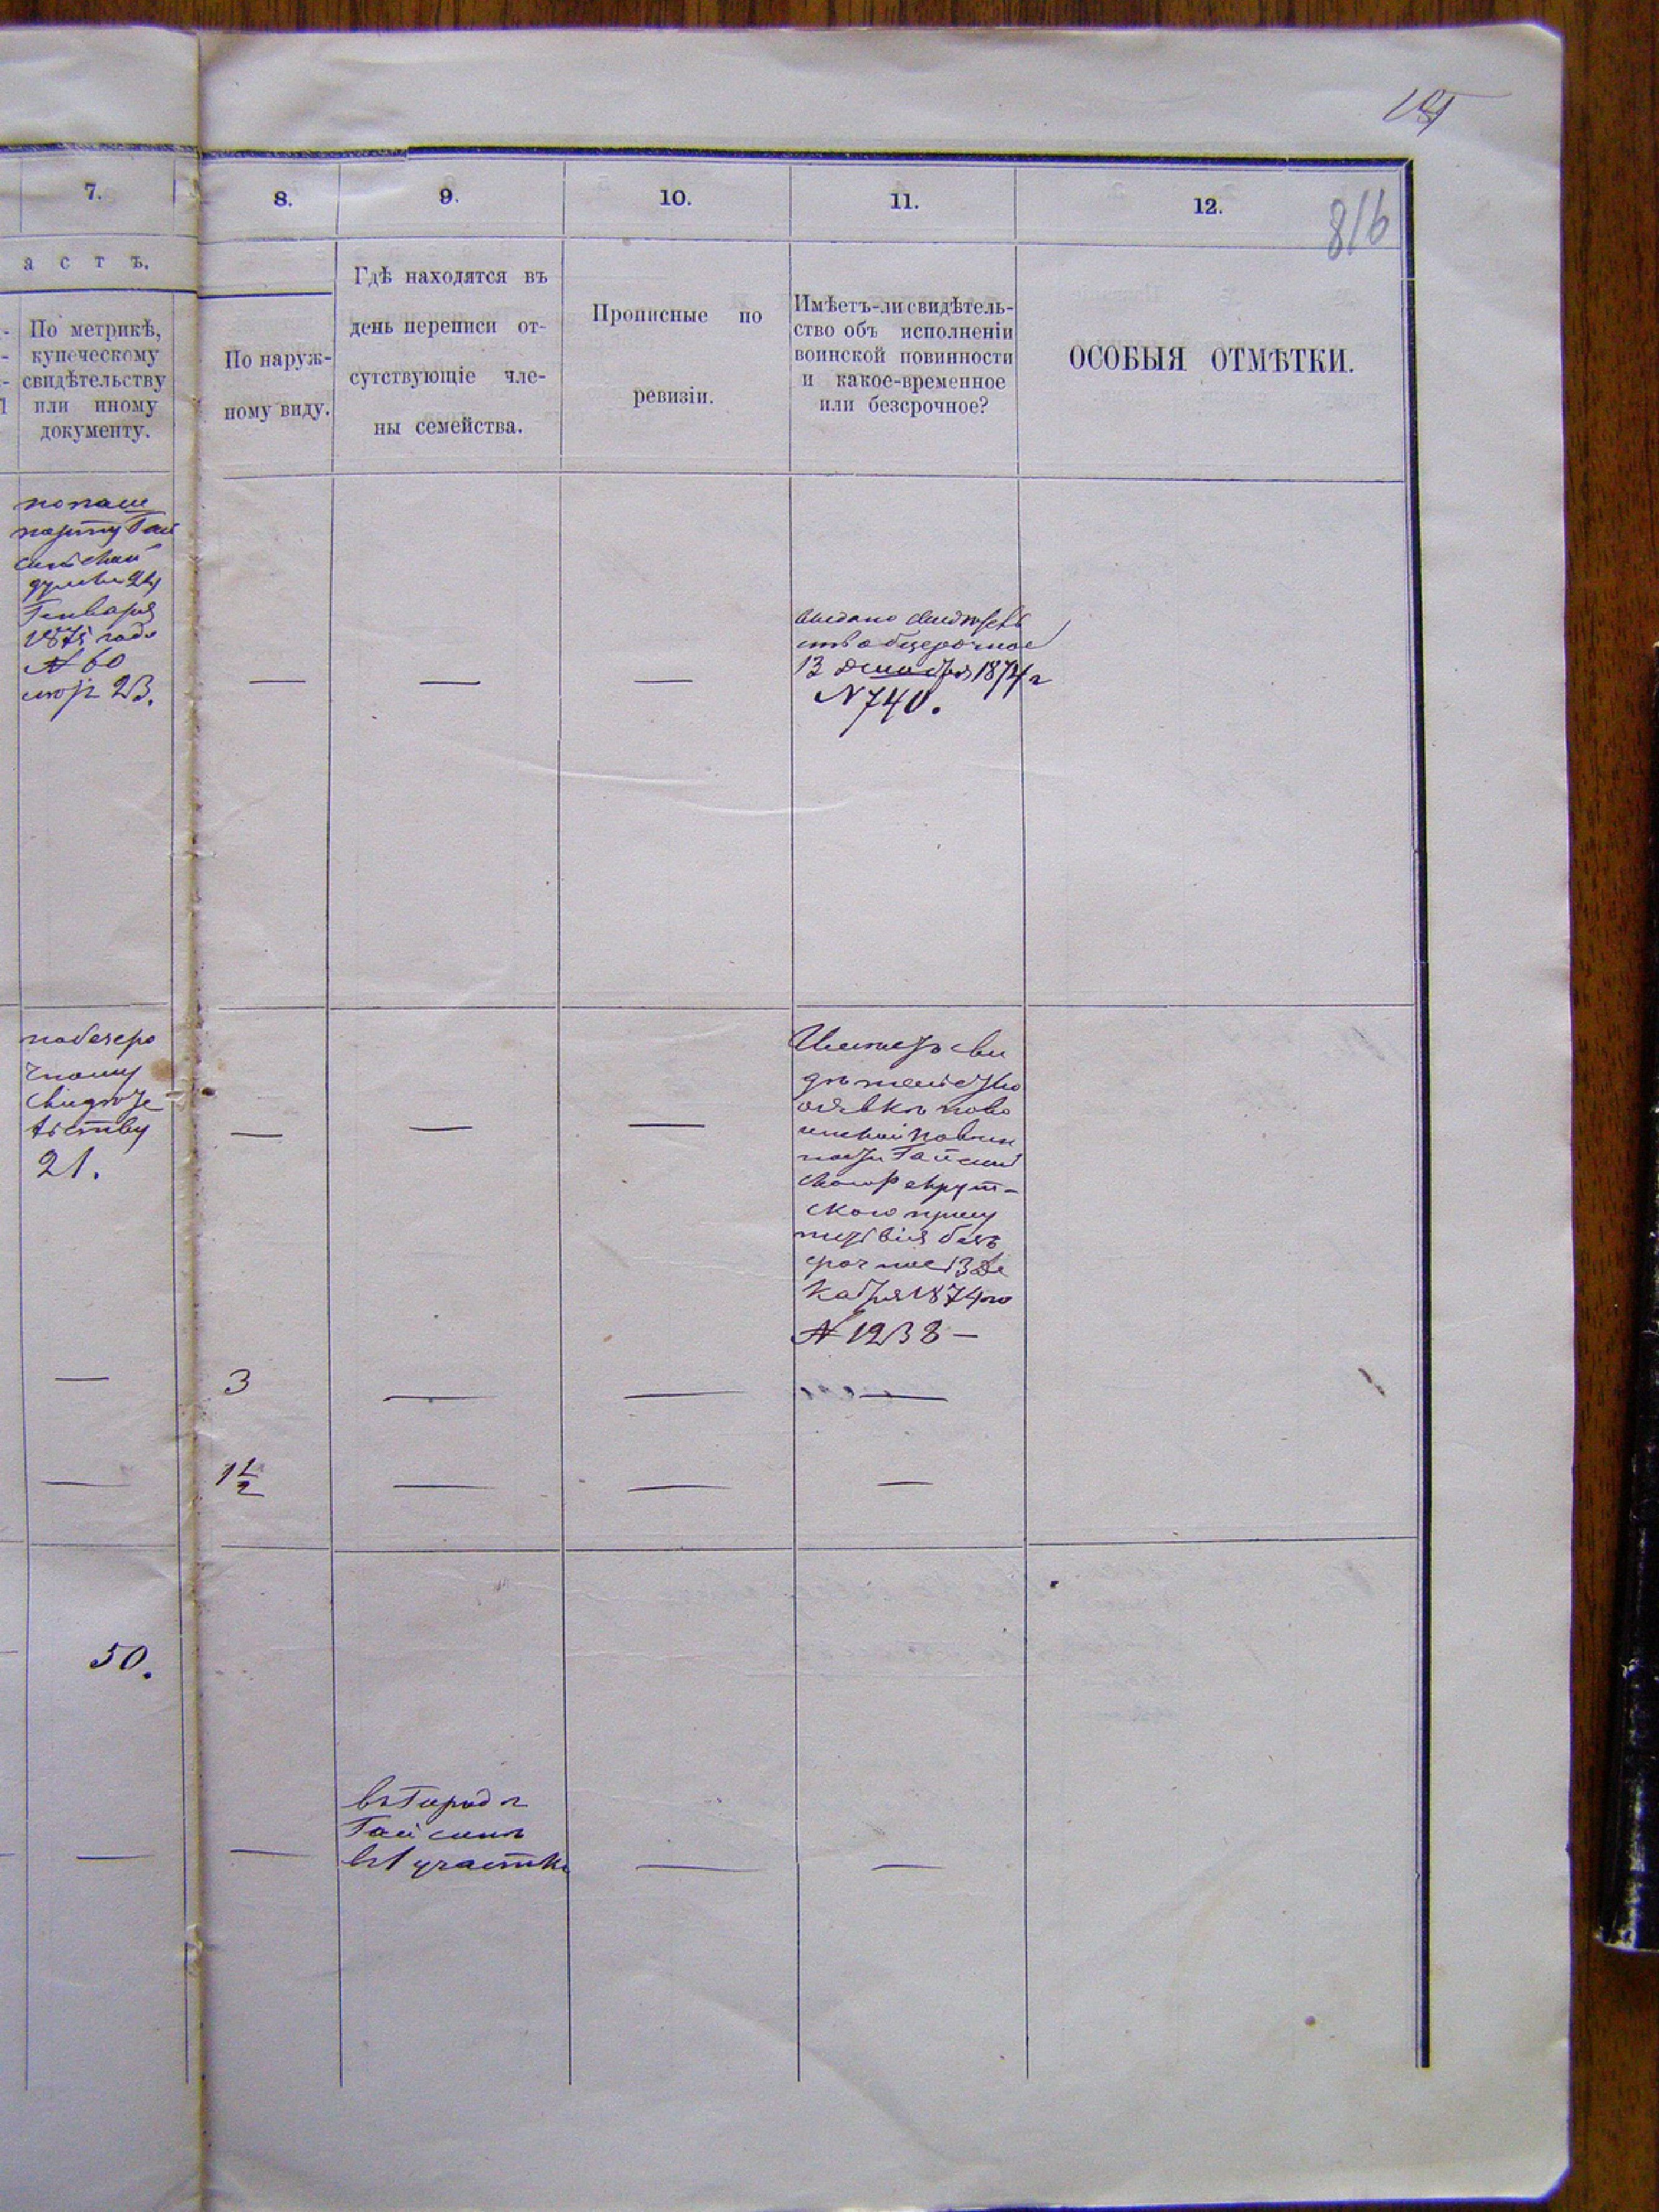 816
7.
8.
9.
10.
11.
12.
а с т ъ.
По метрикѣ,
купеческому
свидѣтельству
или иному
документу.
По наруж-
ному виду.
Гдѣ находятся въ
день переписи от-
сутствующіе чле-
ны семейства.
Прописные по
ревизіи.
Имѣетъ-ли свидѣтель-
ство объ исполненіи
воинской повинности
и какое-временное
или безсрочное?
ОСОБЫЯ ОТМѢТКИ.
по паш
порту Гай
синской
думы 24
Генваря
1875 года
№ 60
23.
—
—
—
выдано свидѣтель
ство безсрочное
13 декабря 1874 г
№ 740.
по безсро
чному
свидѣте
льству
21.
—
—
—
Имѣетъ сви
дѣтельство
о явкѣ по во
инской повин
ности Гайсин
ского рекрут-
ского прису
тствія безъ
срочное 13 Де
кабря 1874 го
№ 1238 —
—
3
—
—
—
—
1 1/2
—
—
—
50.
—
—
въ городѣ
Гайсинѣ
в 1 участкѣ
—
—